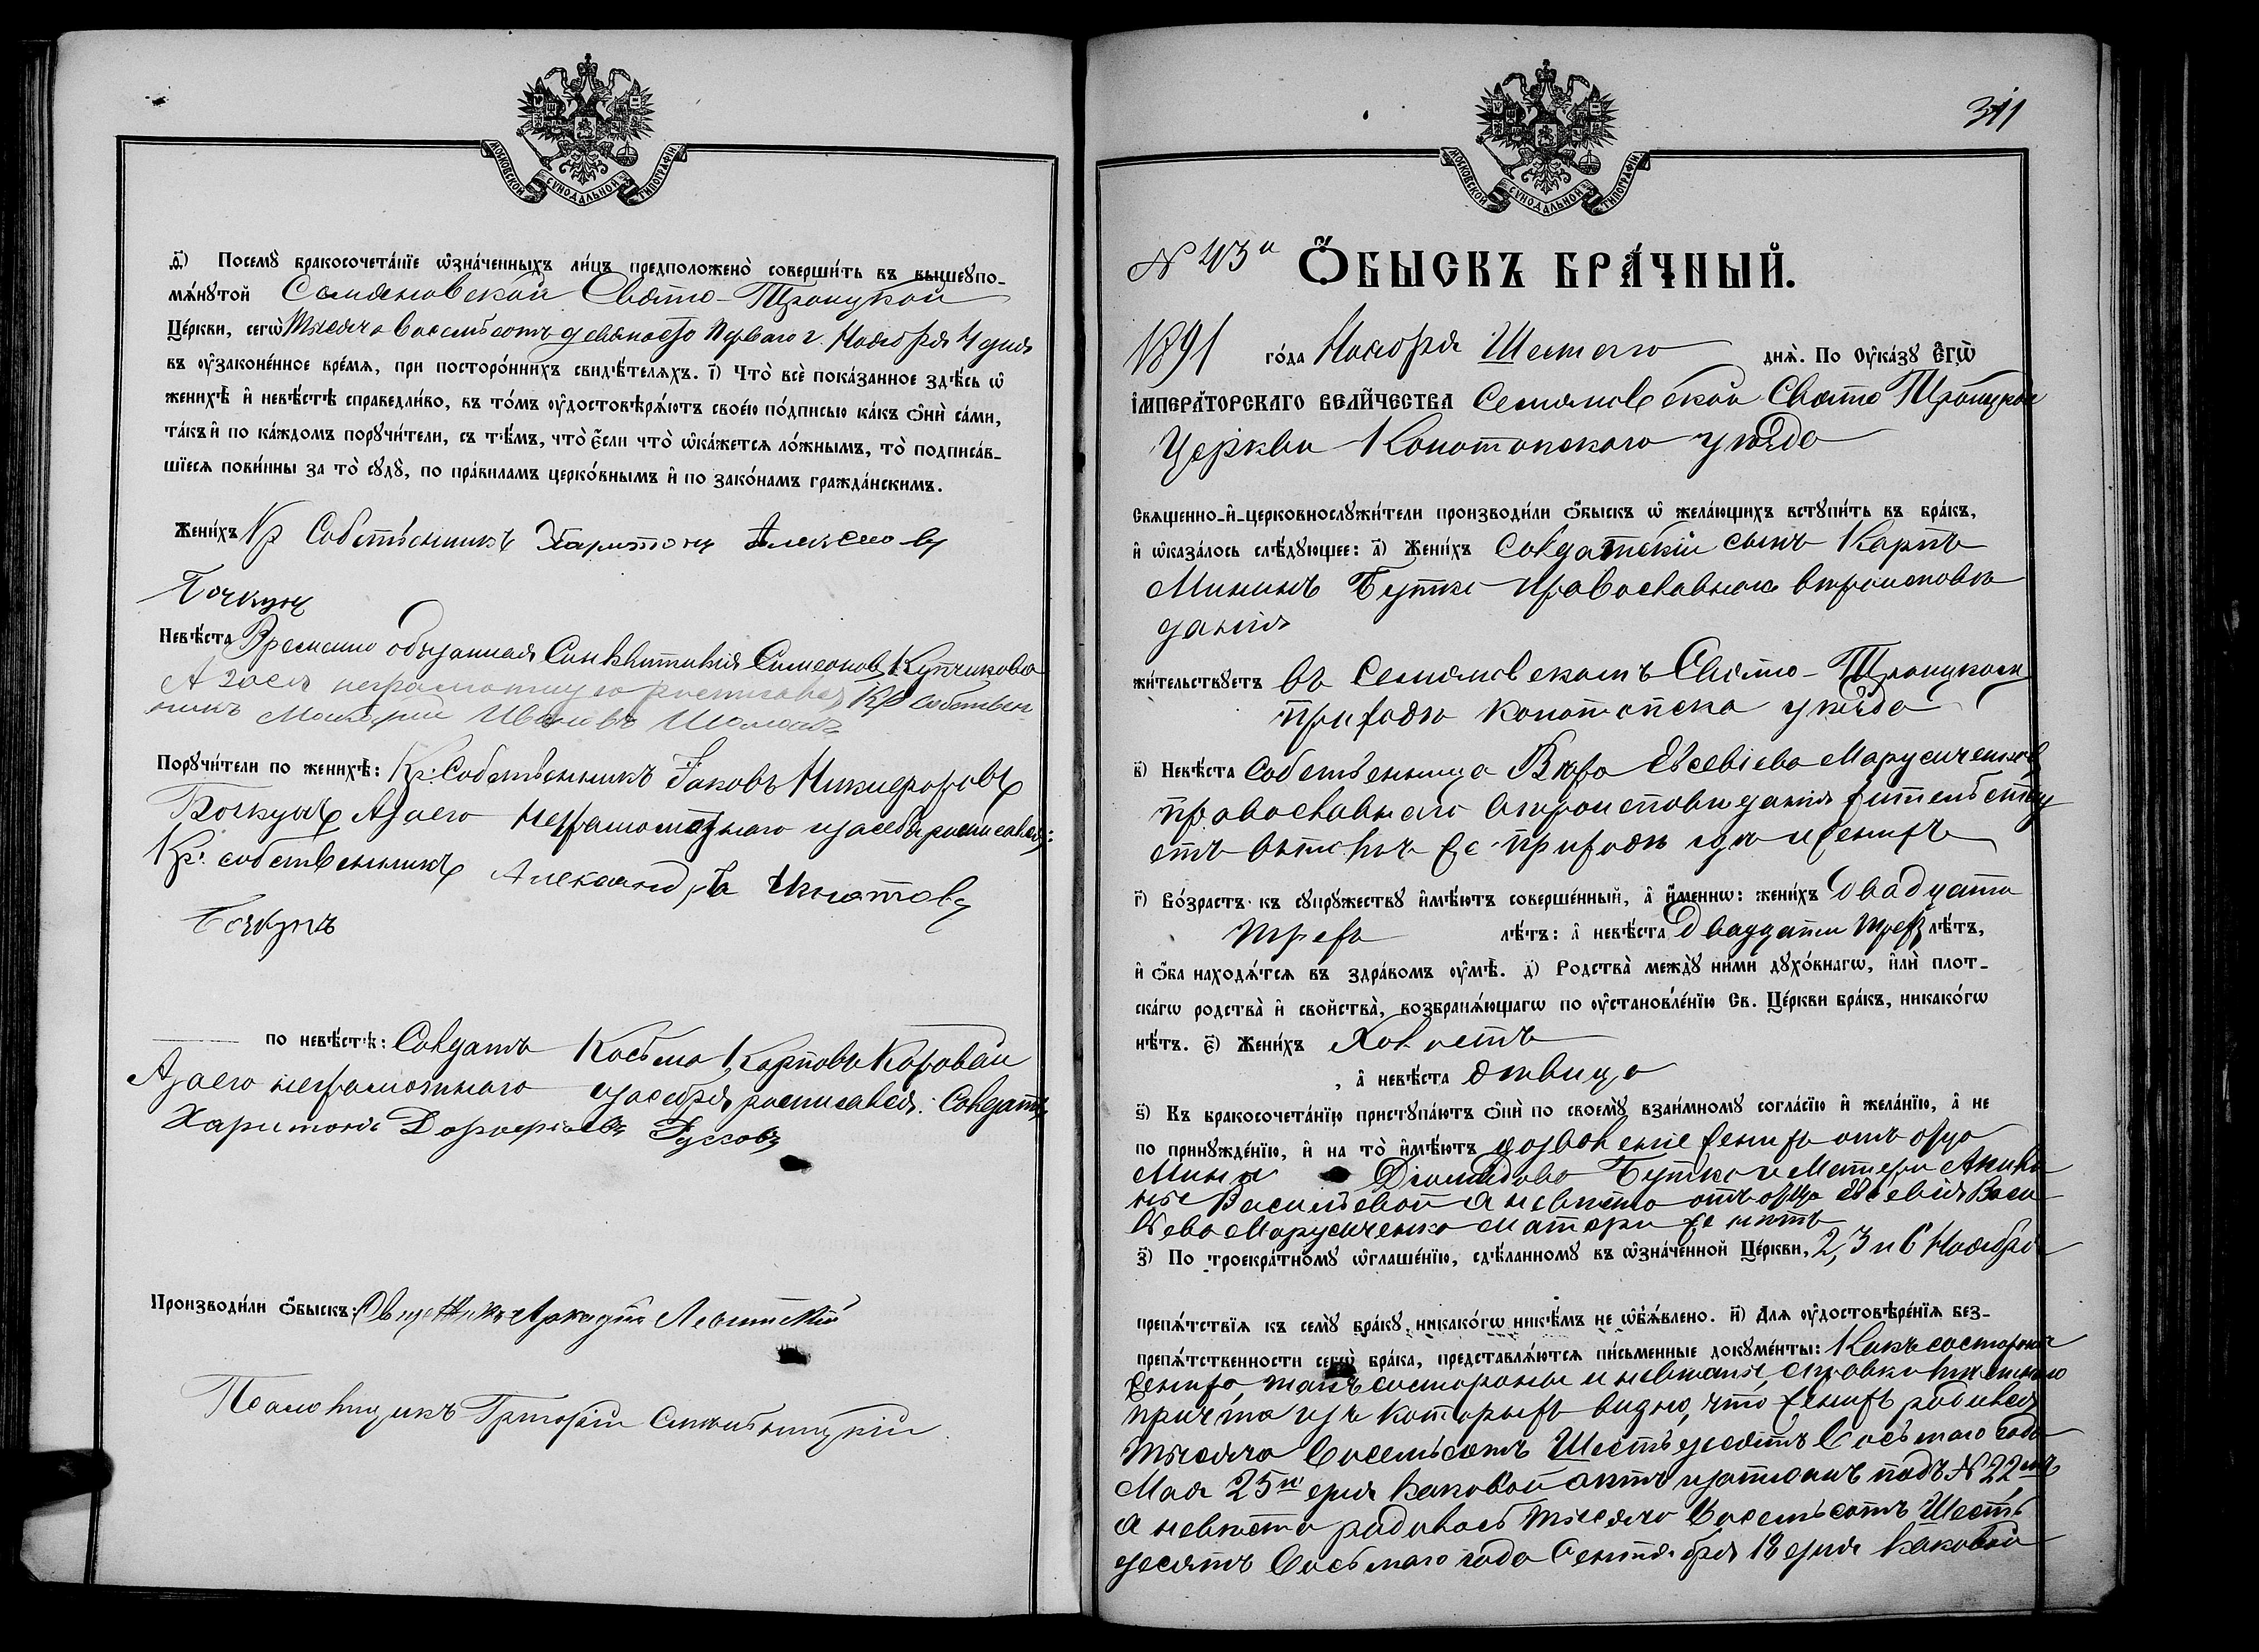 МОСКОВСКОЙ СѴНОДАЛЬНОЙ ТИПОГРАФІИ
д҃) Посемꙋ̀ бракосочета́нїе ѡ҆зна́ченныхъ ли́цъ предположено̀ соверши́ть въ вышеꙋпо-
мѧ́нꙋтой Семяновской Свято-Троицкой
Це́ркви, сегѡ̀ Тысяча восемьсотъ девяносто перваго г. Ноября 4 дня
въ ᲂу҆законе́нное вре́мѧ, при посторо́ннихъ свидѣ́телѧхъ. і҃) Что̀ всѐ пока́занное здѣ́сь ѡ҆
женихѣ̀ и҆ невѣ́стѣ справедли́во, въ то́мъ ᲂу҆достовѣрѧ́ютъ свое́ю по́дписью ка́къ ѻ҆нѝ са́ми,
та́къ и҆ по ка́ждомъ порꙋчи́тели, съ тѣ́мъ, что̀ є҆́сли что̀ ѡ҆ка́жетсѧ ло́жнымъ, то̀ подписа́в-
шїесѧ пови́нны за то̀ сꙋдꙋ̀, по пра́виламъ церко́внымъ и҆ по зако́намъ гражда́нскимъ.
Жени́хъ Кр Собственникъ Харитонъ Алексеевъ
Бочкунъ
Невѣ́ста Временно обязанная Синклитикія Симеонова Купчикова
А за ея неграмотную росписався Кр собствен-
никъ Иванивъ
Порꙋчи́тели по женихѣ̀: Кр: Собственникъ Iаковъ Никифоровъ
Бочкунъ Азаего неграмотнаго изасебя росписався:
Кр: собственникъ Александръ Игнатовъ
Бочкунъ
по невѣ́стѣ: Солдатъ Косьма Карповъ Коровай
Азаего неграмотнаго изасебя росписався: Солдатъ
Харитонъ
Производи́ли ѻ҆́быскъ: Священникъ Аркадій Левитскій
Псаломщикъ Григорій
311
МОСКОВСКОЙ СѴНОДАЛЬНОЙ ТИПОГРАФІИ
N 43й Ѻ҆БЫСКЪ БРА́ЧНЫЙ.
1891 го́да Ноября Шестого днѧ̀. По ᲂу҆ка́зꙋ є҆гѡ̀
і҆мпера́торскагѡ вели́чества Семяновской Свято Троицкой
Церкви Конотопского уѣзда
Свѧщенно-и҆-церковнослꙋжи́тели производи́ли ѻ҆́быскъ ѡ҆ жела́ющихъ встꙋпи́ть въ бра́къ,
и҆ ѡ҆каза́лось слѣ́дꙋющее: а҃) Жени́хъ Солдатскій сынъ Карпъ
Мининъ Бутко православнаго вѣроисповѣ
данія
жи́тельствꙋетъ въ Семяновскомъ Свято-Троицкомъ
приходѣ конотопска уѣзда
в҃) Невѣ́ста Собственница Вѣра Евсевіева Марусиченкова
православнаго вѣроисповиданія жительству
етъ втомъ же приходѣ
г҃) Во́зрастъ къ сꙋпрꙋ́жествꙋ и҆мѣ́ютъ соверше́нный, а҆ и҆́меннѡ: жени́хъ двадцати
трехъ лѣ́тъ: а҆ невѣ́ста двадцати трехъ лѣ́тъ,
и҆ ѻ҆́ба нахо́дѧтсѧ въ здра́вомъ ᲂу҆мѣ̀. д҃) Родства̀ междꙋ̀ ни́ми дꙋхо́внагѡ, и҆лѝ плот-
ска́гѡ родства̀ и҆ свойства̀, возбранѧ́ющагѡ по ᲂу҆становле́нїю Св. Це́ркви бра́къ, никако́гѡ
нѣ́тъ. є҃) Жени́хъ Холостъ
, а҆ невѣ́ста дѣвица
ѕ҃) Къ бракосочета́нїю пристꙋпа́ютъ ѻ҆нѝ по своемꙋ̀ взаи́мномꙋ согла́сїю и҆ жела́нїю, а҆ не
по принꙋжде́нїю, и҆ на то̀ и҆мѣ́ютъ дозволеніе женихъ отъ отца
Мины Діомидова Бутко и Матери Акили
ны Васильевой а невѣста отъ отца Евсевія Васи
льева Марусиченко матери же нитъ
з҃) По троекра́тномꙋ ѡ҆глаше́нїю, сдѣ́ланномꙋ въ ѡ҆зна́ченной Це́ркви, 2, 3 и 6 Ноября
препѧ́тствїѧ къ семꙋ̀ бра́кꙋ никако́гѡ никѣ́мъ не ѡ҆б̾ѧ́влено. и҃) Длѧ ᲂу҆достовѣре́нїѧ без-
препѧ́тственности сегѡ̀ бра́ка, представлѧ́ютсѧ пи́сьменные докꙋме́нты: Какъ состороны
жениха, такъ состороны и невѣсты, справки
причта изъ которыхъ видно, что женихъ родился
тысяча восемьсотъ шестьдесятъ восьмаго года
Мая 25го дня каковой актъ подъ N 22мъ
а невѣста родилась тысяча восемьсотъ шесть
десятъ восьмаго года Сентября 18 дня каковой